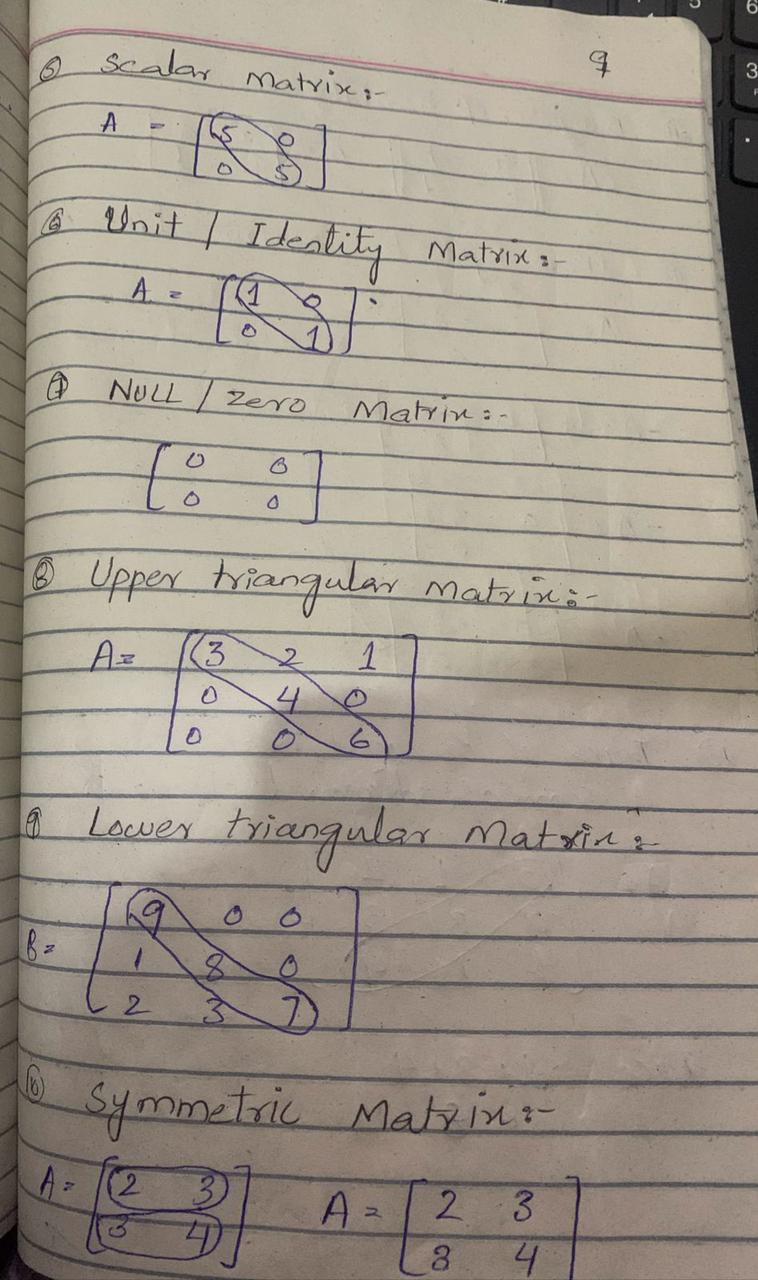 9
⑤ Scalar Matrix:-
A = [5 0
0 5]
⑥ Unit / Identity Matrix:-
A = [1 0
0 1]
⑦ NULL / Zero Matrix:-
[0 0
0 0]
⑧ Upper triangular Matrix:-
A = [3 2 1
0 4 0
0 0 6]
⑨ Lower triangular Matrix:-
B = [9 0 0
1 8 0
2 3 7]
⑩ Symmetric Matrix:-
A = [2 3 A = [2 3
3 4] 3 4]